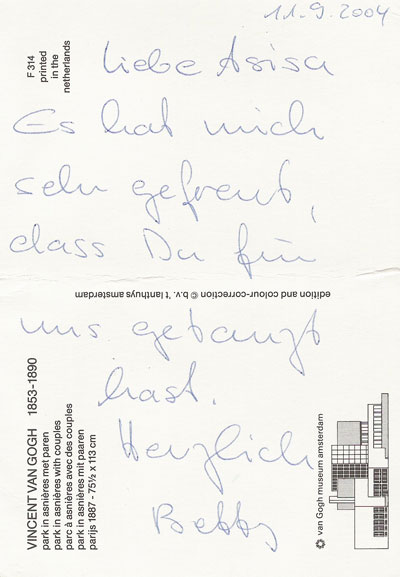 11.9.2004
Liebe Asisa
Es hat mich
sehr gefreut,
dass Du für
uns getanzt
hast.
Herzlich
Betty
F 314
printed
in the
netherlands
edition and colour-correction © b.v. 't lanthuys amsterdam
VINCENT VAN GOGH 1853-1890
park in asnières met paren
park in asnières with couples
parc à asnières avec des couples
park in asnières mit paaren
parijs 1887 - 75½ x 113 cm
van Gogh museum amsterdam